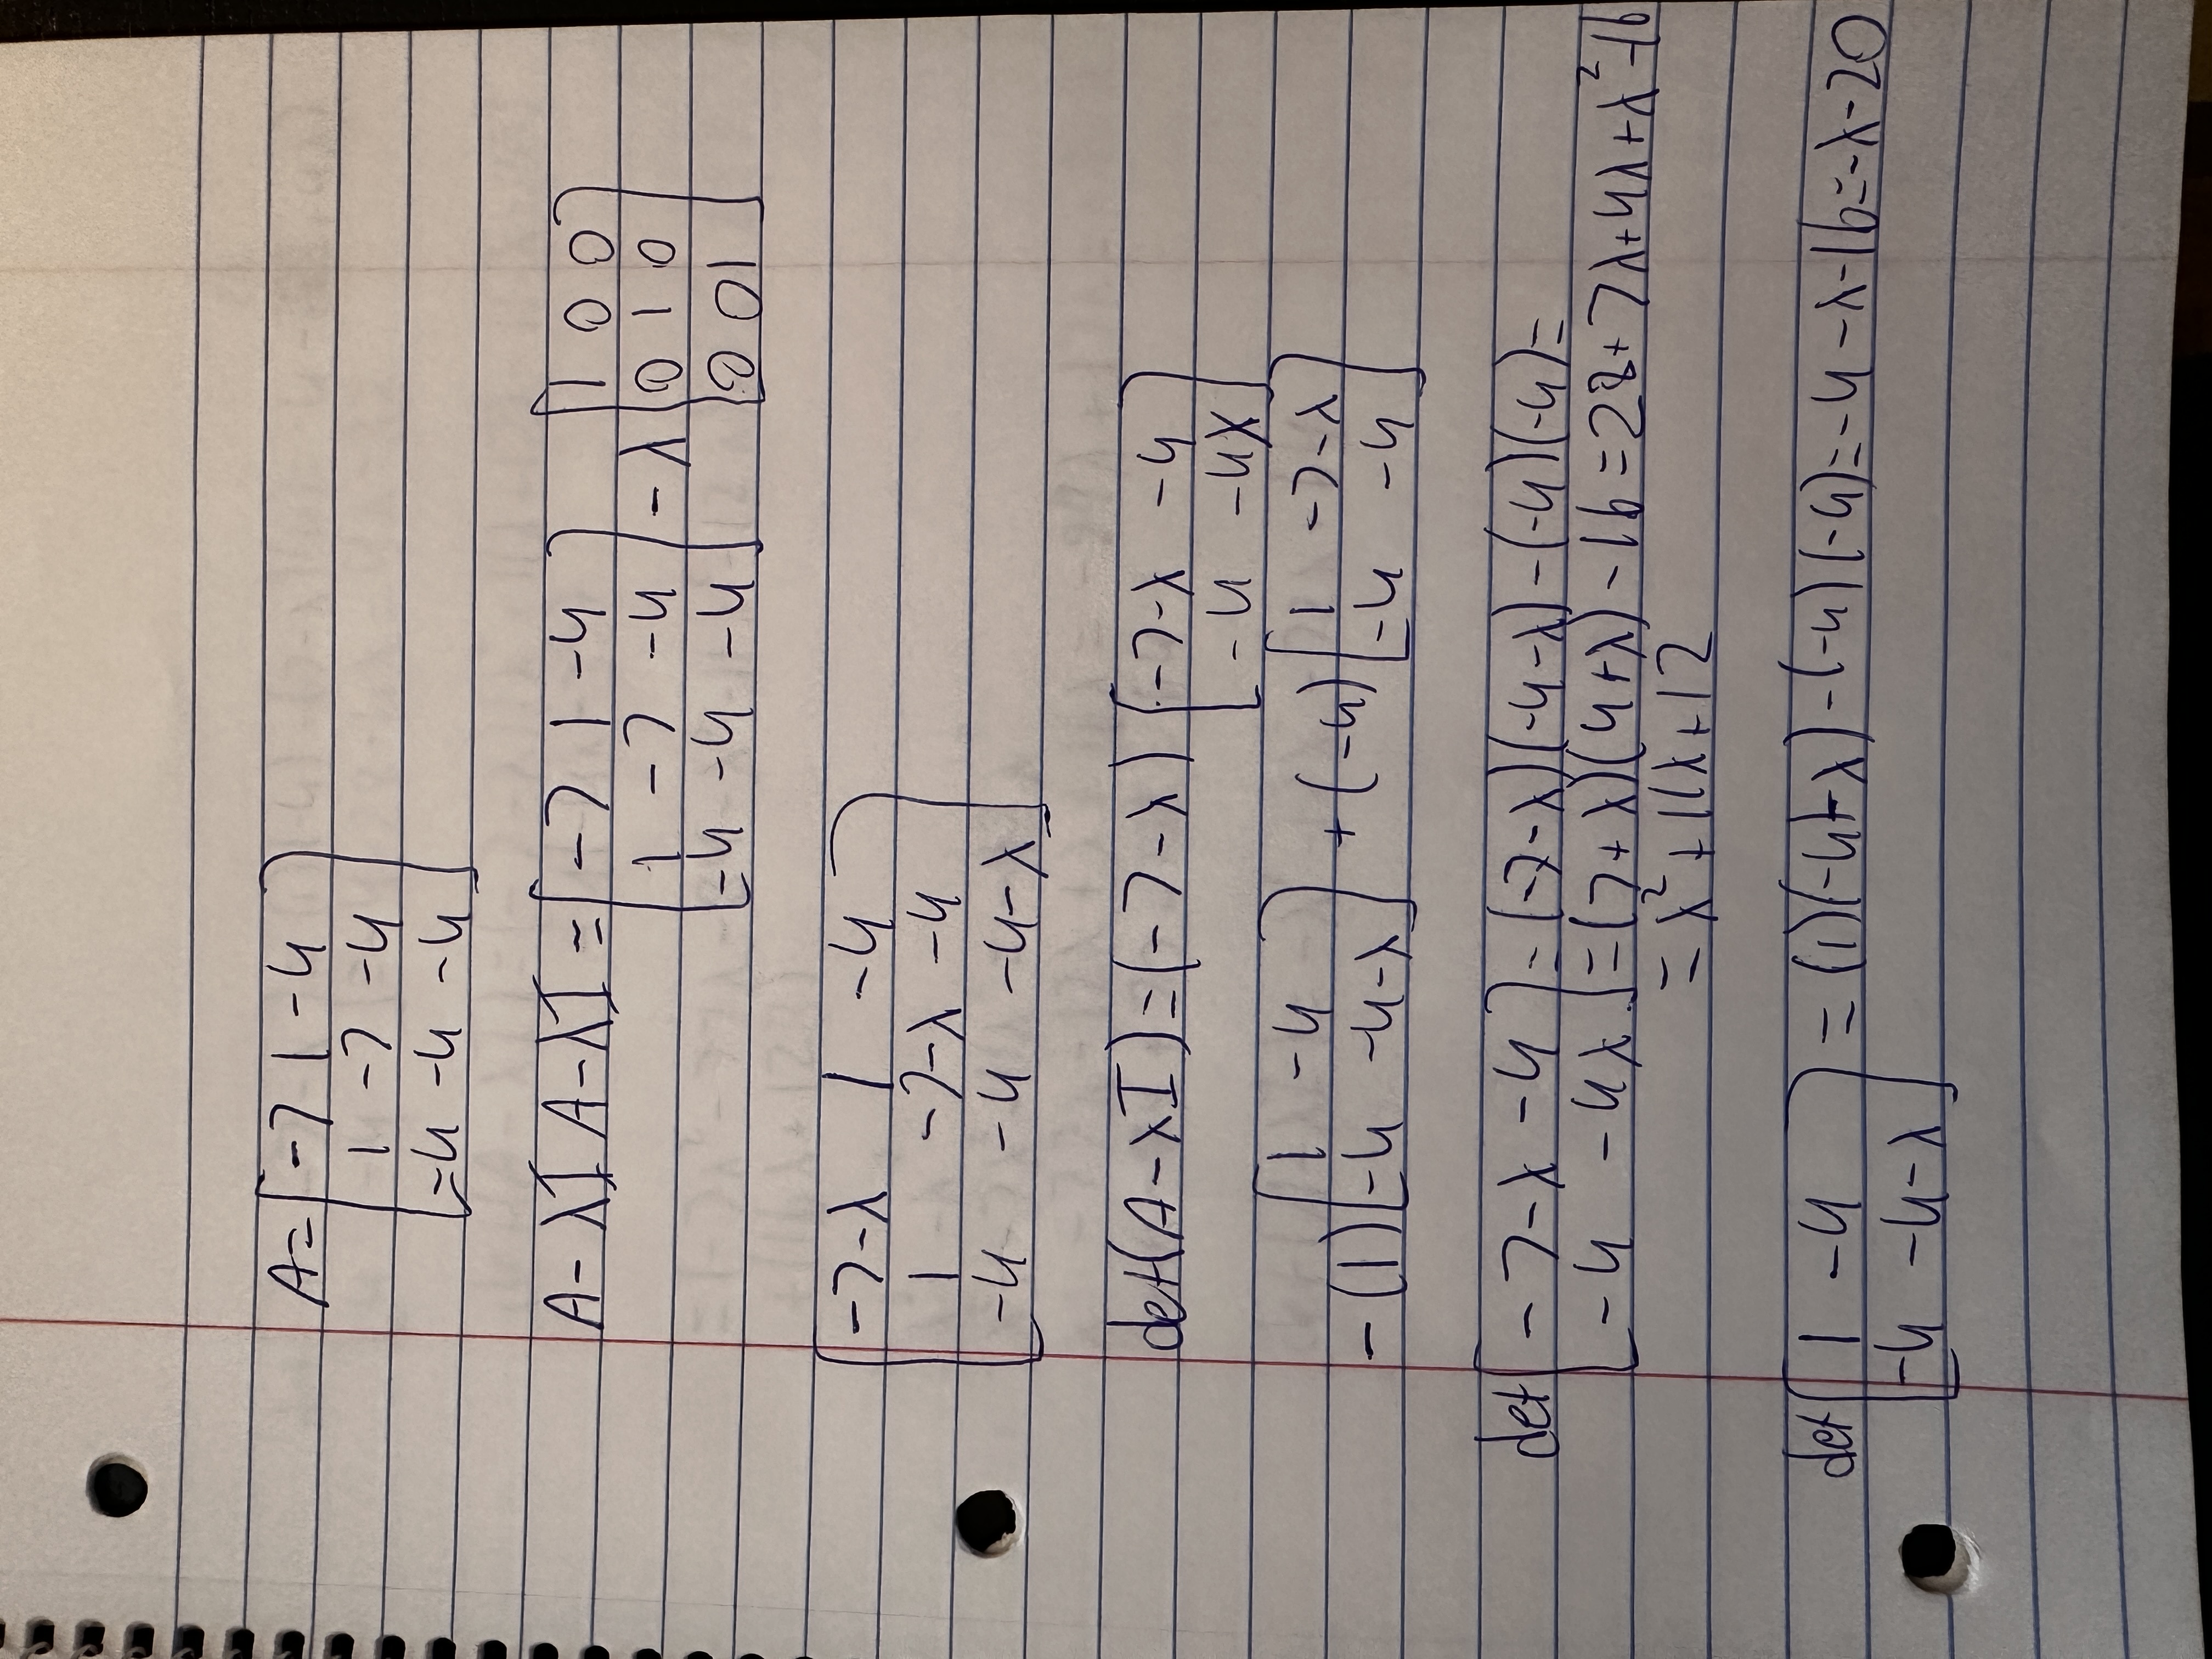 A = [ -7 1 -4
1 -7 -4
-4 -4 -4 ]
A - λI A - λI = [ -7 1 -4 ] [ 1 0 0 ]
[ 1 -7 -4 ] - λ [ 0 1 0 ]
[ -4 -4 -4 ] [ 0 0 1 ]
[ -7-λ 1 -4
1 -7-λ -4
-4 -4 -4-λ ]
det(A - λI) = (-7 - λ) [ -7-λ -4
-4 -4λ ]
- (1) [ 1 -4 ] + (-4) [ 1 -7-λ ]
[ -4 -4-λ ] [ -4 -4 ]
det [ -7-λ -4 ] = (-7-λ)(-4-λ) - (-4)(-4) =
[ -4 -4λ ] = (7+λ)(4+λ) - 16 = 28 + 7λ + 4λ + λ² - 16
= λ² + 11λ + 12
det [ 1 -4 ] = (1)(-4-λ) - (-4)(-4) = -4 - λ - 16 = -λ - 20
[ -4 -4-λ ]